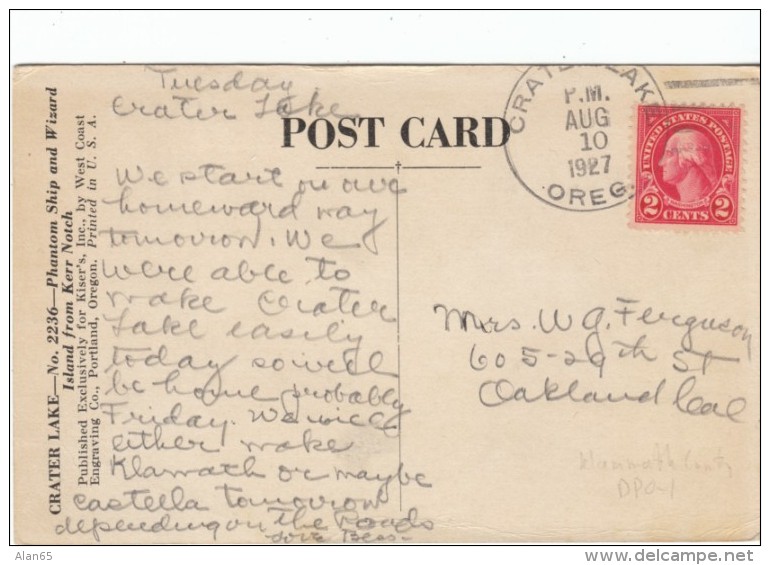 Tuesday
Crater Lake
POST CARD
CRATER LAKE
P.M.
AUG
10
1927
OREG.
UNITED STATES POSTAGE
2 CENTS 2
CRATER LAKE—No. 2236—Phantom Ship and Wizard
Island from Kerr Notch
Published Exclusively for Kiser's, Inc., by West Coast
Engraving Co., Portland, Oregon. Printed in U. S. A.
We start on our
homeward way
tomorrow. We
were able to
make Crater
Lake easily
today so will
be home probably
Friday. We will
either make
Klamath or maybe
Castella tomorrow
depending on the Roads
Love Bess-
Mrs. W G. Ferguson
605-29th St
Oakland Cal
DPO-1
Alan65
delcampe.net